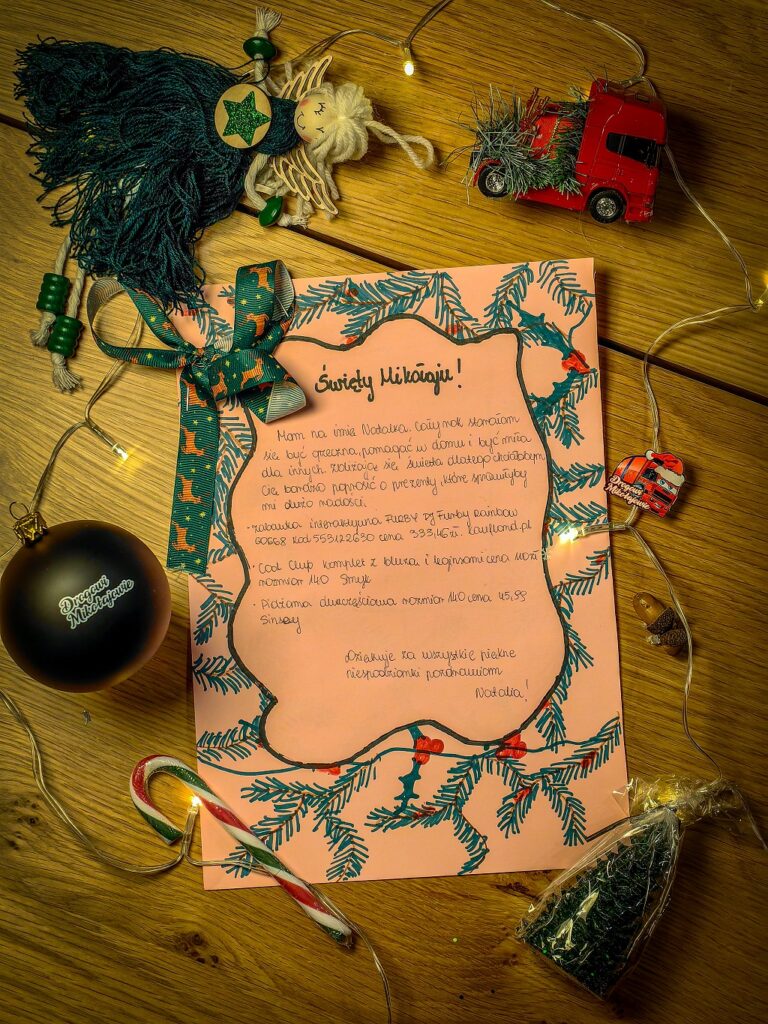 Święty Mikołaju!
Mam na imię Natalka. Cały rok starałam
się być grzeczna, pomagać w domu i być miła
dla innych. Zbliżają się święta dlatego chciałabym
Cię bardzo poprosić o prezenty, które sprawiłyby
mi dużo radości.
• Zabawka interaktywna FURBY DJ Furby Rainbow
60668 kod 553122630 cena 333,46zł. kaufland.pl
• Cool Club komplet z bluzą i legginsami cena 110zł
rozmiar 140 Smyk
• Pidżama dwuczęściowa rozmiar 140 cena 45,99
Sinsay
Dziękuje za wszystkie piękne
niespodzianki pozdrawiam
Natalia!
Drogowi
Mikołajowie
Drogowi
Mikołajowie